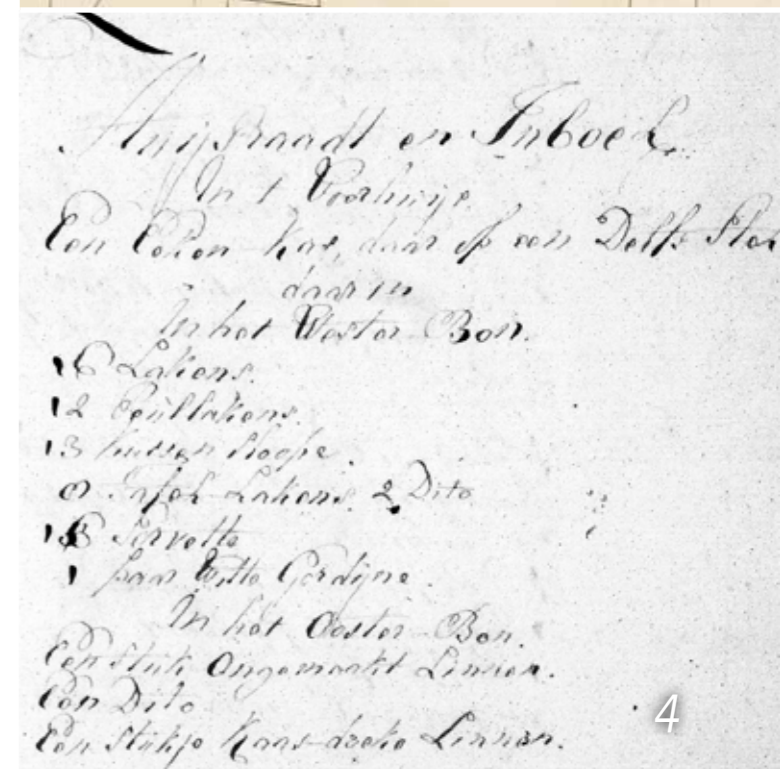 Huijsraadt en Inboel
In t Voorhuijs
Een Eeken Kas, daar op een Delfs Stel
daar in
In het Wester Bon.
16 Lakens.
12 Peullakens.
13 kussen sloope.
Tafel Lakens. 2 Dito
Servette
1 paar Witte Gordijne.
In het Ooster Bon.
Een stuk Ongemaakt Linnen.
Een Dito
Een stukje Kaas-doeke Linnen.
4